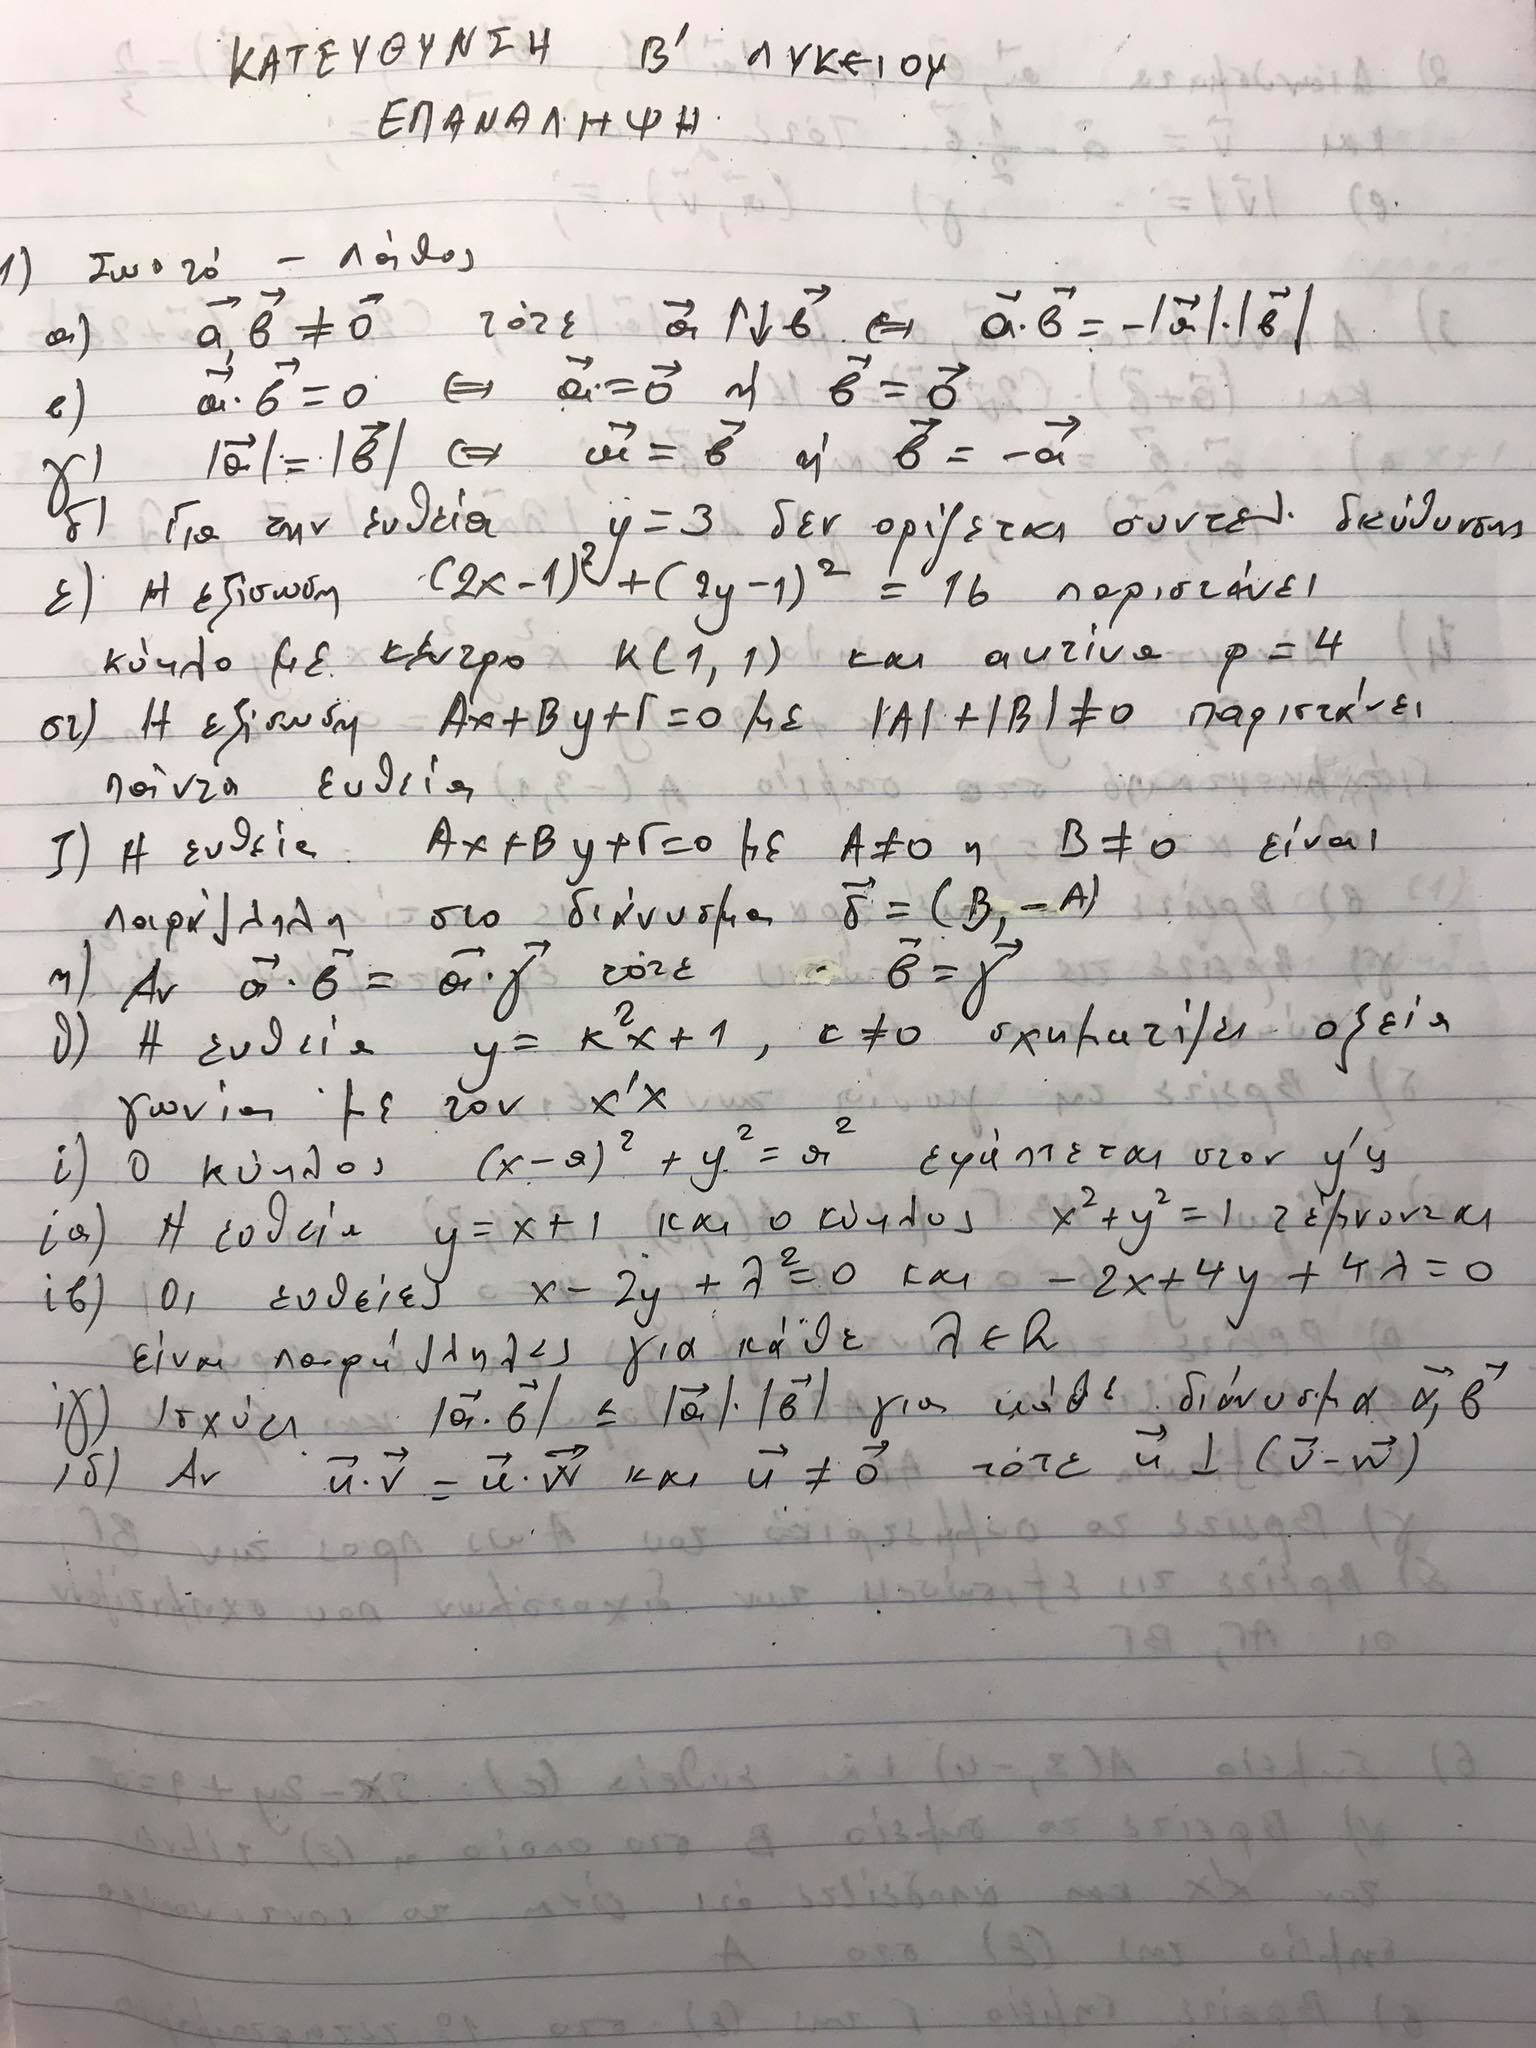 ΚΑΤΕΥΘΥΝΣΗ Β' ΛΥΚΕΙΟΥ
ΕΠΑΝΑΛΗΨΗ
1) Σωστό - Λάθος
α) a⃗, β⃗ ≠ 0⃗ τότε a⃗ ↑↓ β⃗ ⇔ a⃗·β⃗ = -|a⃗|·|β⃗|
β) a⃗·β⃗ = 0 ⇔ a⃗ = 0⃗ ή β⃗ = 0⃗
γ) |a⃗| = |β⃗| ⇔ a⃗ = β⃗ ή β⃗ = -a⃗
δ) Για την ευθεία y = 3 δεν ορίζεται συντελ. διεύθυνσης
ε) Η εξίσωση (2x-1)² + (2y-1)² = 16 παριστάνει
κύκλο με κέντρο Κ(1,1) και ακτίνα ρ = 4
στ) Η εξίσωση Ax+By+Γ=0 με |A|+|B|≠0 παριστάνει
πάντα ευθεία
ζ) Η ευθεία Ax+By+Γ=0 με A≠0 ή B≠0 είναι
παράλληλη στο διάνυσμα δ⃗ = (B,-A)
η) Αν a⃗·β⃗ = a⃗·γ⃗ τότε β⃗ = γ⃗
θ) Η ευθεία y = κ²x+1, κ≠0 σχηματίζει οξεία
γωνία με τον x'x
ι) Ο κύκλος (x-α)² + y² = α² εφάπτεται στον y'y
ια) Η ευθεία y = x+1 και ο κύκλος x²+y²=1 τέμνονται
ιβ) Οι ευθείες x-2y+λ²=0 και -2x+4y+4λ=0
είναι παράλληλες για κάθε λ∈R
ιγ) Ισχύει |a⃗·β⃗| ≤ |a⃗|·|β⃗| για κάθε διάνυσμα a⃗, β⃗
ιδ) Αν u⃗·v⃗ = u⃗·w⃗ και u⃗ ≠ 0⃗ τότε u⃗ ⊥ (v⃗-w⃗)